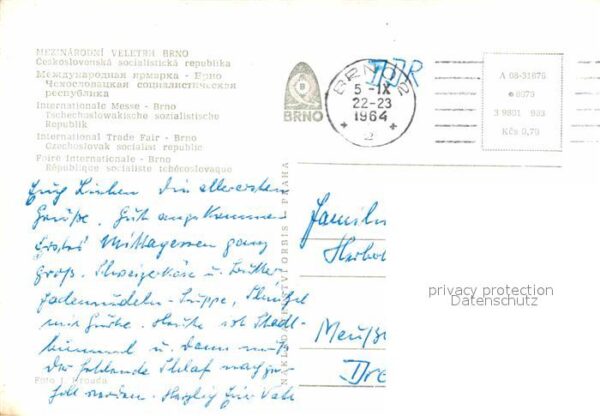 MEZINÁRODNÍ VELETRH BRNO
Československá socialistická republika
Международная ярмарка - Брно
Чехословацкая социалистическая
республика
Internationale Messe - Brno
Tschechoslowakische sozialistische
Republik
International Trade Fair - Brno
Czechoslovak socialist republic
Foire Internationale - Brno
République socialiste tchécoslovaque
BRNO
BRNO 2
5-IX
22-23
1964
2
DDR
A 08-31676
6673
Kčs 0,70
NAKLADATELSTVÍ ORBIS - PRAHA
Euch Lieben die allerersten
Grüße. Gut angekommen
Erstes Mittagessen ganz
groß. Schweizerkäse u. Butter
Fadennudeln-Suppe, Schnitzel
mit Gurke. Heute ist Stadt-
bummel u. dann muß
der fehlende Schlaf nachge-
holt werden. Herzlich
Foto J.
Familie
Meuß
Dre
privacy protection
Datenschutz